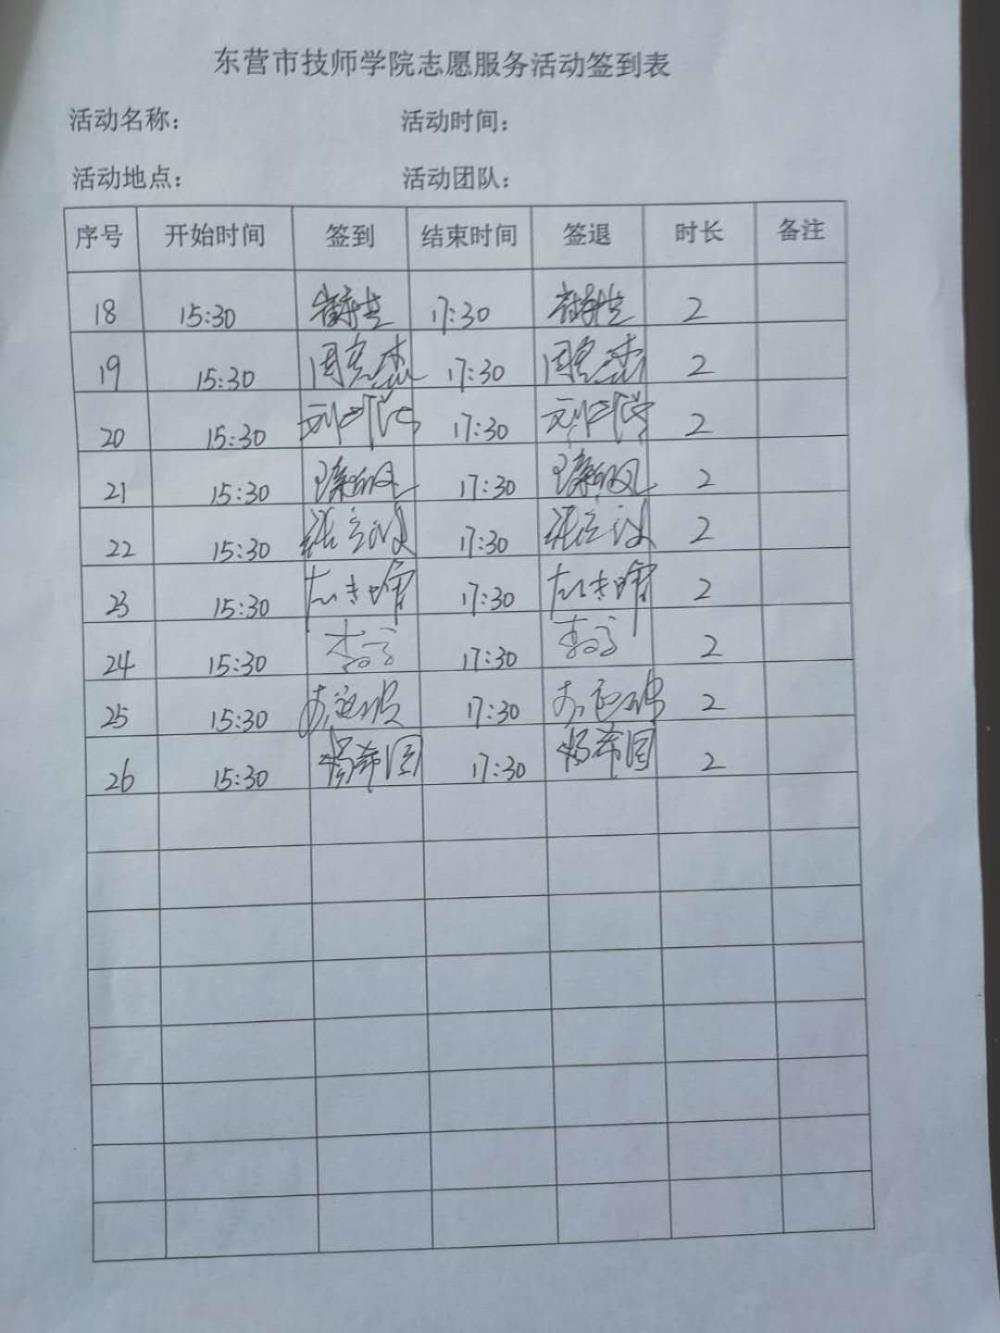 东营市技师学院志愿服务活动签到表
活动名称： 活动时间：
活动地点： 活动团队：
序号 开始时间 签到 结束时间 签退 时长 备注
18 15:30 17:30 2
19 15:30 周宪杰 17:30 周宪杰 2
20 15:30 17:30 2
21 15:30 17:30 2
22 15:30 张立波 17:30 张立波 2
23 15:30 17:30 2
24 15:30 17:30 2
25 15:30 17:30 2
26 15:30 杨希国 17:30 杨希国 2